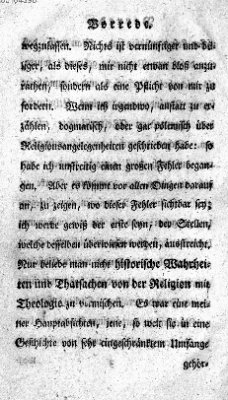 Vorrede.
wegzulassen. Nichts ist vernünftiger und bil-
liger, als dieses, mir nicht etwan bloß anzu-
rathen, sondern als eine Pflicht von mir zu
fordern. Wenn ich irgendwo, anstatt zu er-
zählen, dogmatisch, oder gar polemisch über
Religionsangelegenheiten geschrieben habe: so
habe ich unstreitig einen großen Fehler began-
gen. Aber es kömmt vor allen Dingen darauf
an, zu zeigen, wo dieser Fehler sichtbar sey;
ich werde gewiß der erste seyn, der Stellen,
welche desselben überwiesen werden, ausstreiche.
Nur beliebe man nicht historische Wahrhei-
ten und Thatsachen von der Religion mit
Theologie zu vermischen. Es war eine mei-
ner Hauptabsichten, jene, so weit sie in eine
Geschichte von sehr eingeschränktem Umfange
gehör-